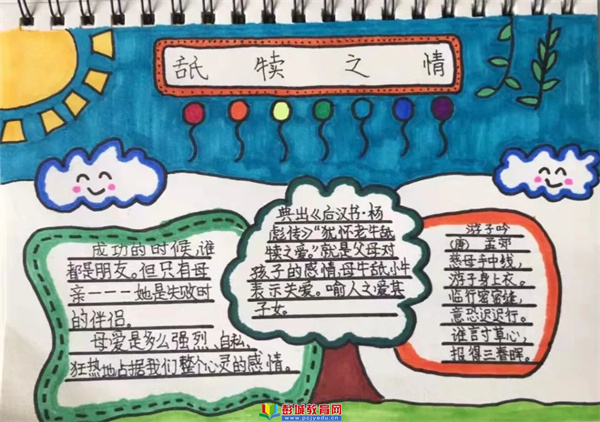 舐犊之情
成功的时候,谁
都是朋友。但只有母
亲———她是失败时
的伴侣。
母爱是多么强烈、自私、
狂热地占据我们整个心灵的感情。
典出《后汉书·杨
彪传》“犹怀老牛舐
犊之爱。”就是父母对
孩子的感情,母牛舐小牛
表示关爱。喻人之爱其
子女。
游子吟
(唐) 孟郊
慈母手中线,
游子身上衣。
临行密密缝,
意恐迟迟行。
谁言寸草心,
报得三春晖。
彭城教育网
www.pcjyedu.cn